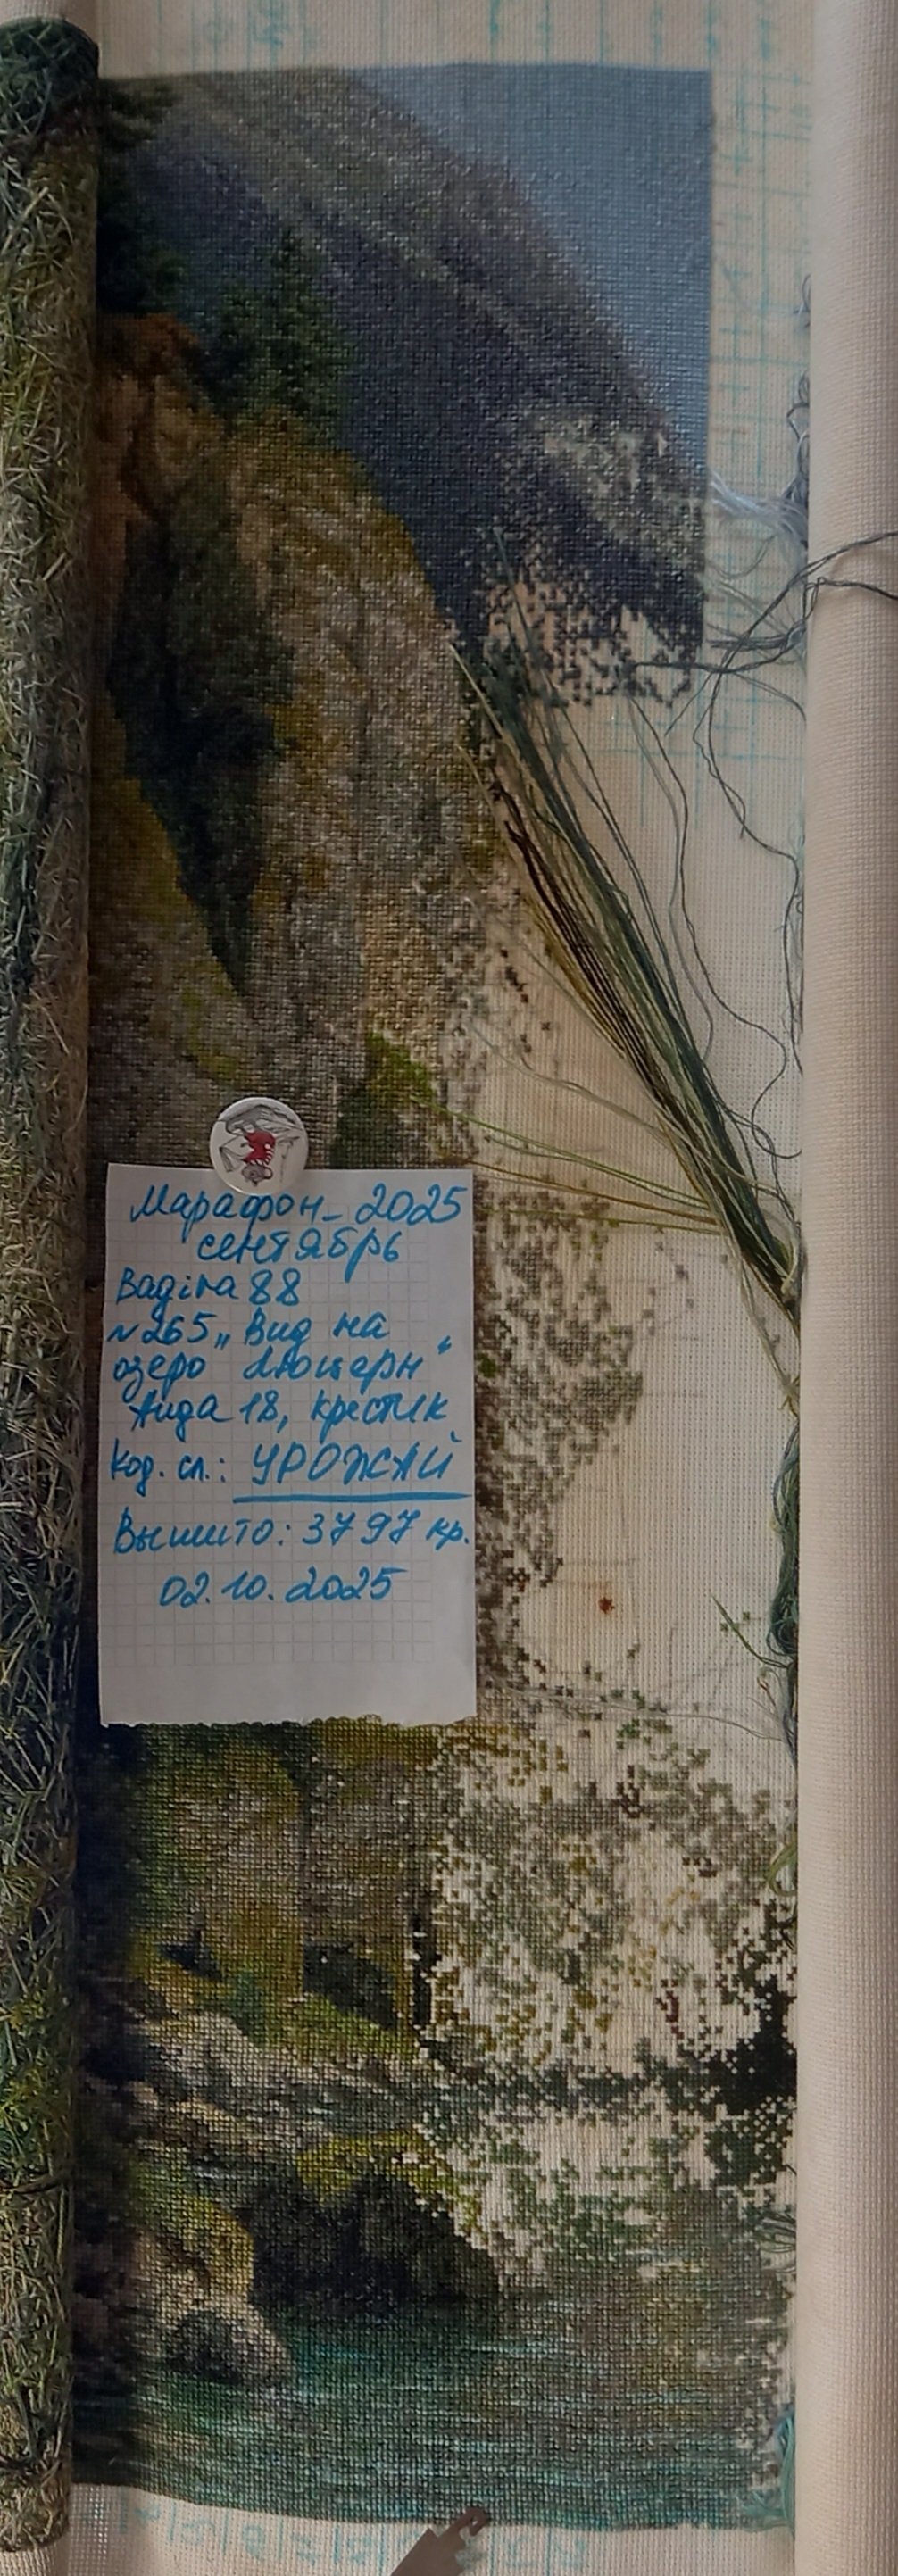 Марафон - 2025
сентябрь
Bagira 88
№265 „Вид на
озеро Люцерн"
Аида 18, крестик
Код. сл.: УРОЖАЙ
Вышито: 3797 кр.
02.10.2025